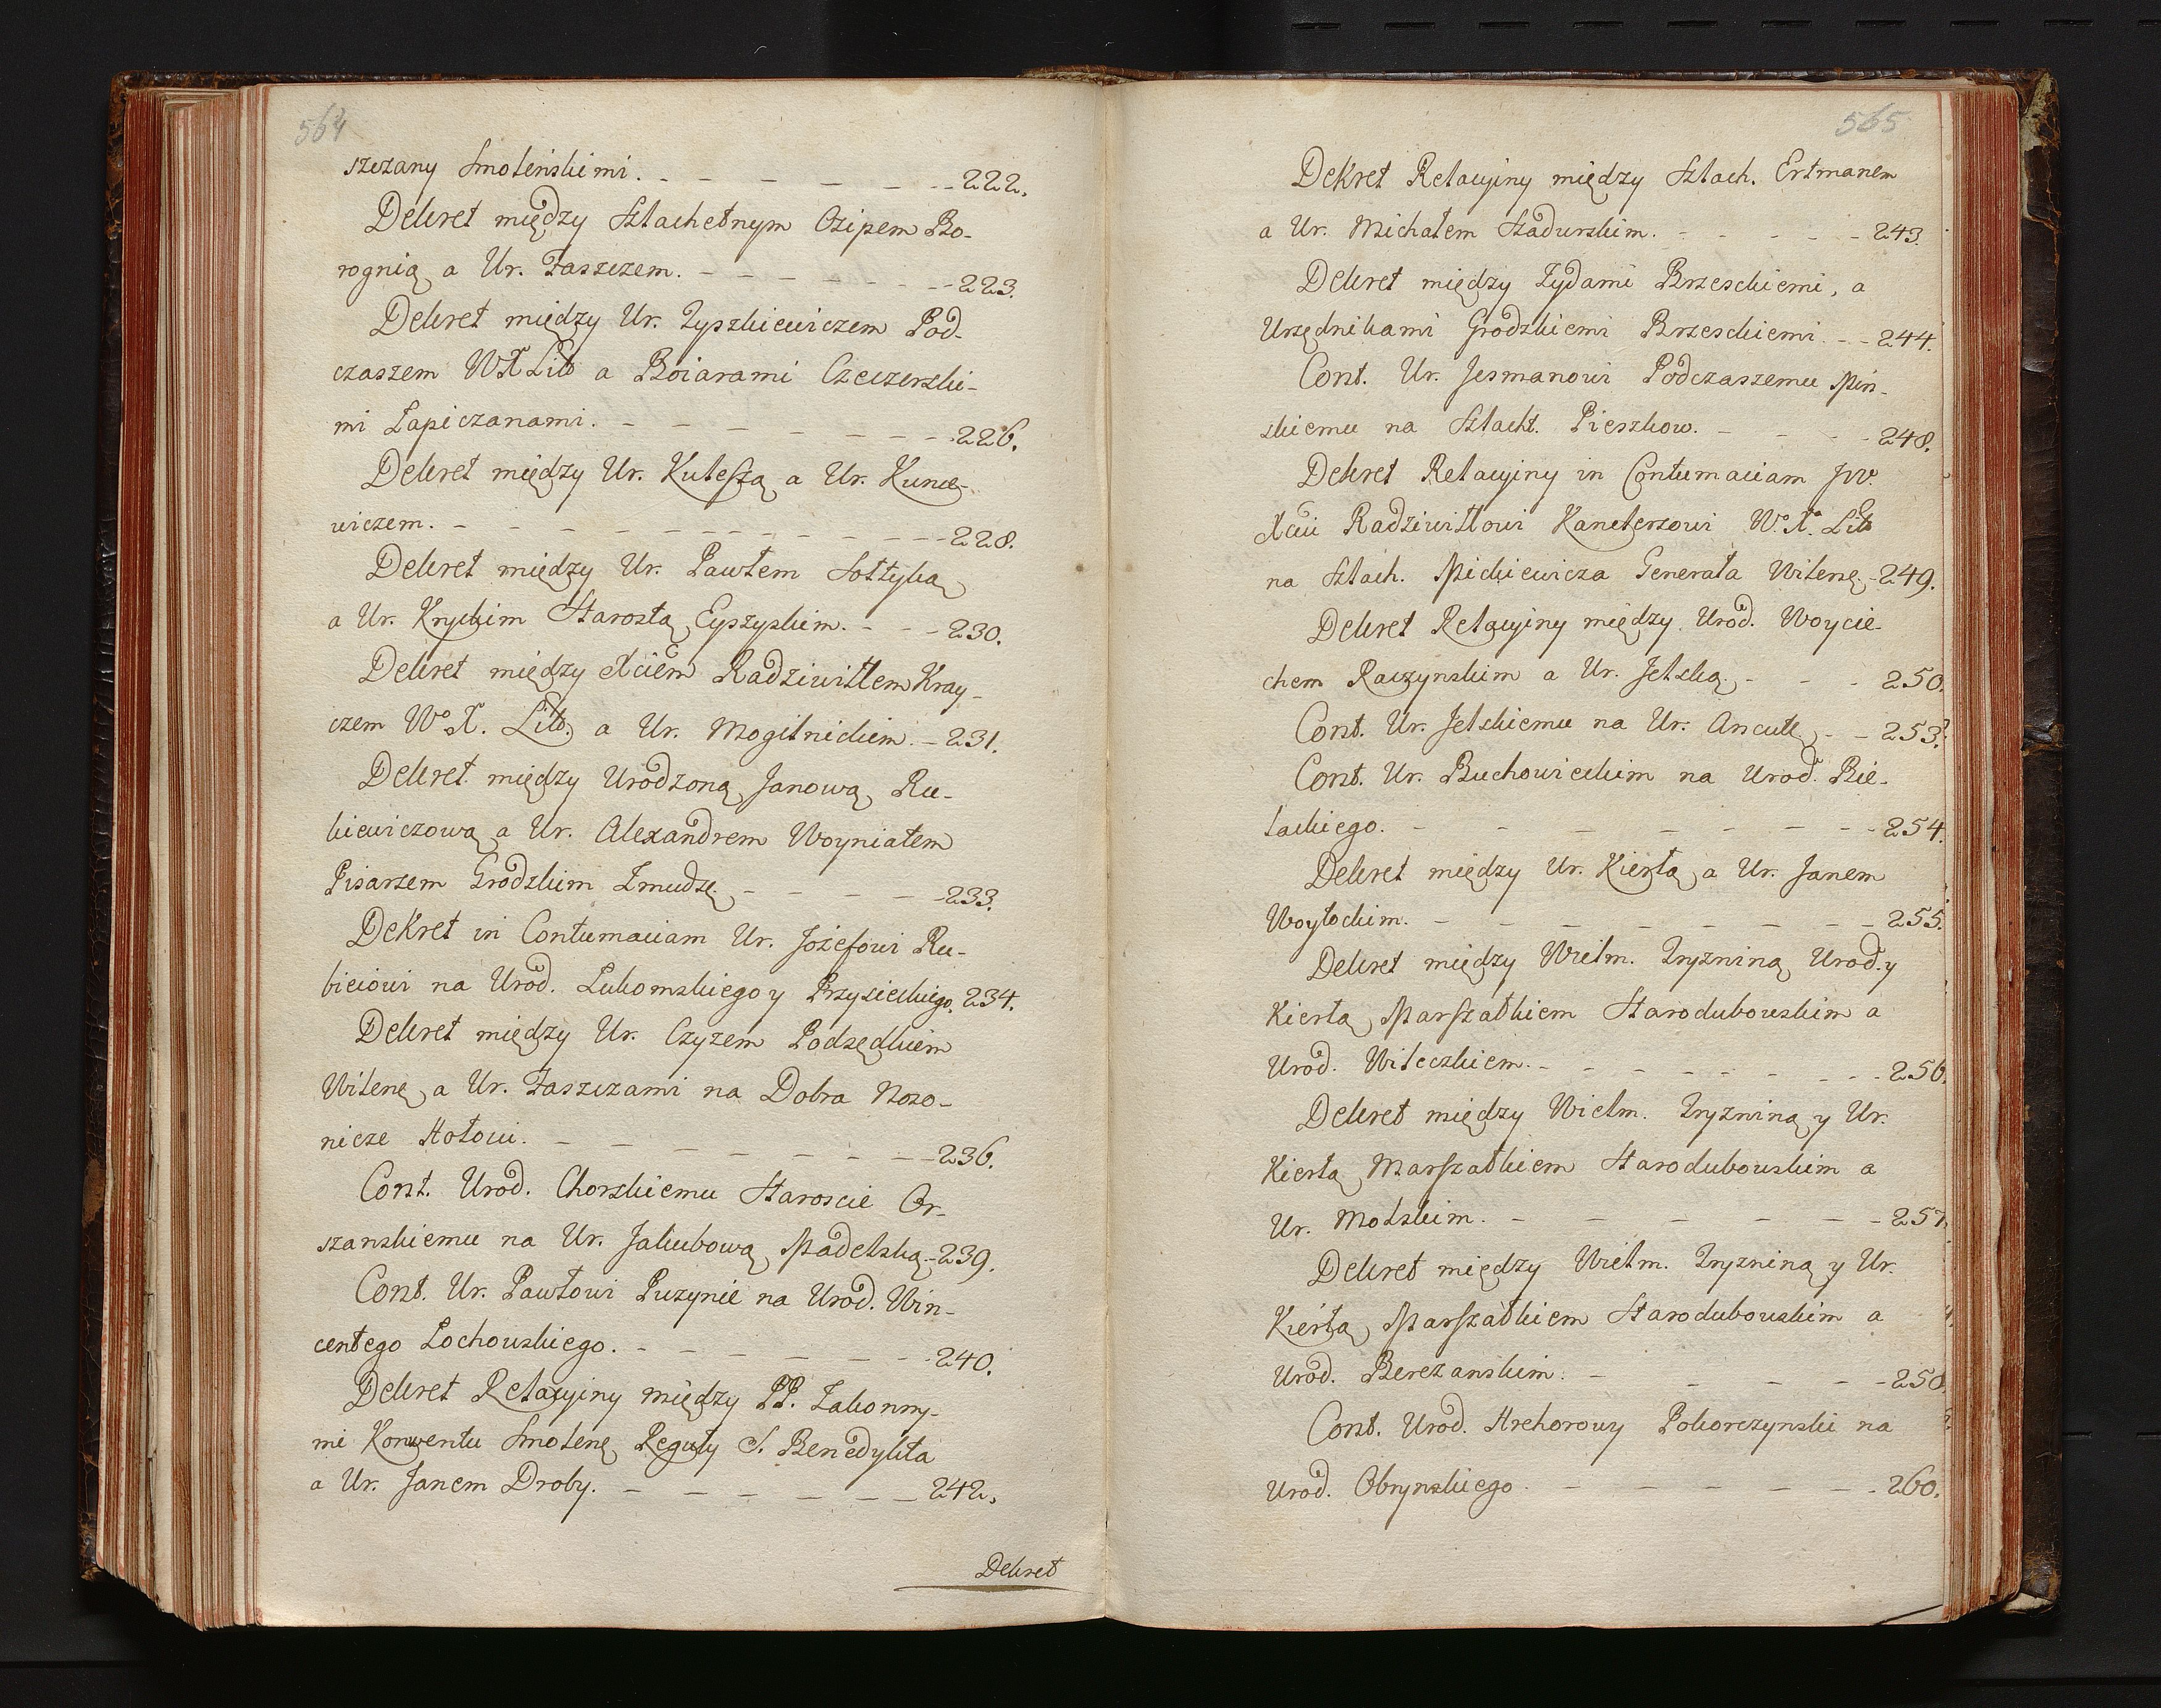 564
szczany Smoleńskiemi. - - - - - - - 222.
Dekret między Szlachetnym Ozipem Bo-
rognią a Ur. Zaszczem. - - - - - - - 223.
Dekret między Ur. Tyszkiewiczem Pod-
czaszem WX Litt a Boiarami Czeczerski-
mi Łapiczanami. - - - - - - - 226.
Dekret między Ur. Kuleszą a Ur. Kunce-
wiczem. - - - - - - - - - - - 228.
Dekret między Ur. Pawłem Sołtyką
a Ur. Kryckim Starostą Eyszyskim. - - - 230.
Dekret między Xciem Radziwiłłem Kray-
czem Wo X. Litt. a Ur. Mogilnickim. - 231.
Dekret między Urodzoną Janową Ru-
kiewiczową a Ur. Alexandrem Woyniałem
Pisarzem Grodzkim Zmudzę. - - - - - 233.
DeKret in Contumaciam Ur. Jozefowi Ru-
bieiowi na Urod. Lukomskiego y Przysieckiego. 234.
Dekret między Ur. Czyzem Podsędkiem
Wilenę a Ur. Zaszczami na Dobra Nozo-
nicze Hołowi. - - - - - - - - 236.
Cont. Urod. Chorskiemu Staroscie Or-
szanskiemu na Ur. Jakubową Madelską. - 239.
Cont. Ur. Pawłowi Puzynie na Urod. Win-
centego Łochowskiego. - - - - - - 240.
Dekret Relacyiny między PP. Zakonny-
mi Konwentu Smolenę Reguły S. Benedykta
a Ur. Janem Droby. - - - - - - - 242.
Dekret
565
DeKret Relacyiny między Szlach. Ertmanem
a Ur. Michałem Stadurskim. - - - - - 243.
Dekret między Zydami Brzeskiemi, a
Urzędnikami Grodzkiemi Brzeskiemi. - - 244.
Cont. Ur. Jesmanowi Podczaszemu Min-
skiemu na Szlacht. Pieszkow. - - - - 248.
Dekret Relacyiny in Contumaciam JW.
Xciu Radziwiłłowi Kanclerzowi Wo. Xo. Litt
na Szlach. Mickiewicza Generała Wilenę. - 249.
Dekret Relacyiny między Urod. Woycie-
chem Raczynskim a Ur. Jelską. - - - 250.
Cont. Ur. Jelskiemu na Ur. Ancutę. - - 253.
Cont. Ur. Buchowieckim na Urod. Bie-
lackiego. - - - - - - - - 254.
Dekret między Ur. Kierłą a Ur. Janem
Woyłockim. - - - - - - - - 255.
Dekret między Wielm. Tryzniną Urod. y
Kierłą Marszałkiem Starodubowskim a
Urod. Witeczkiem. - - - - - - - - 256.
Dekret między Wielm. Tryzniną y Ur.
Kierłą Marszałkiem Starodubowskim a
Ur. Molskim. - - - - - - 257.
Dekret między Wielm. Tryzniną y Ur.
Kierłą Marszałkiem Starodubowskim a
Urod. Berezanskim. - - - - - 258.
Cont. Urod. Hrehorowy Pokorczynski na
Urod. Obrynskiego. - - - - - - - 260.